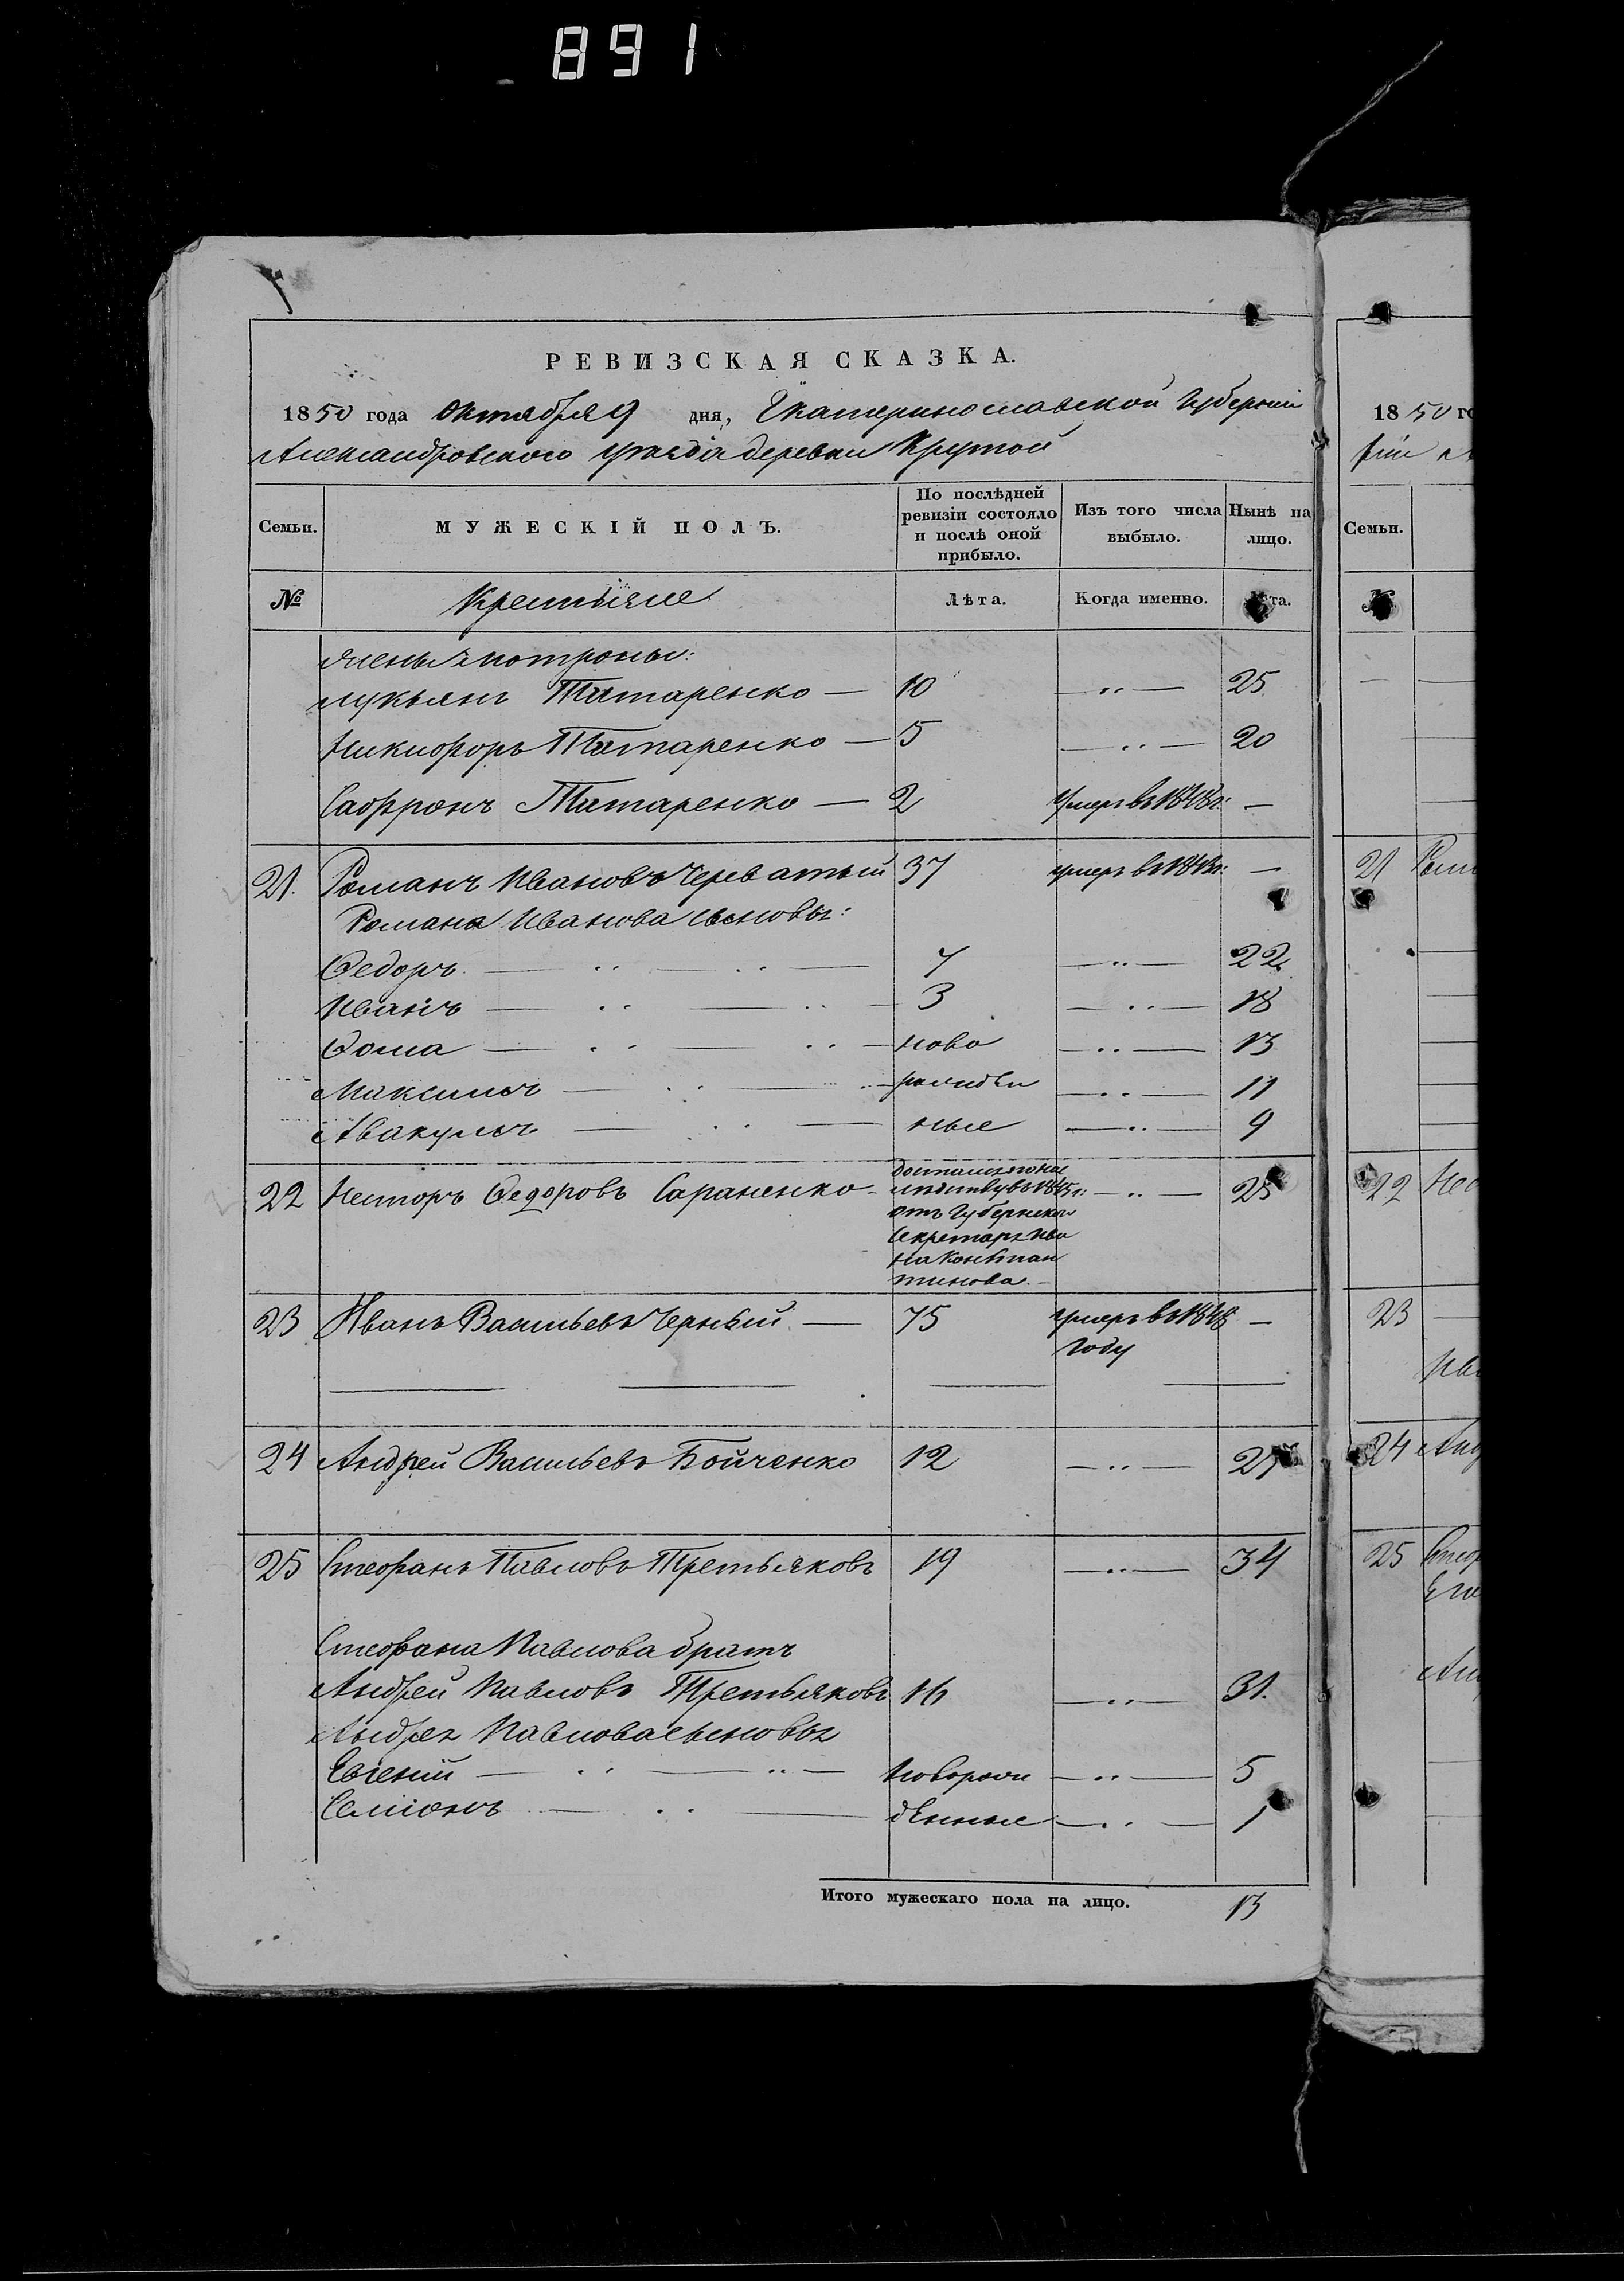 891
РЕВИЗСКАЯ СКАЗКА.
1850 года Октября 9 дня, Екатеринославской Губернии
Александровского уезда деревни Крутой
Семьи. МУЖЕСКІЙ ПОЛЪ. По послѣдней ревизіи состояло и послѣ оной прибыло. Изъ того числа выбыло. Нынѣ на лицо.
№ Крестьяне Лѣта. Когда именно. Лѣта.
Лукьянъ Татаренко — 10 — 25
Никифоръ Татаренко — 5 — 20
Сафронъ Татаренко — 2 умеръ въ 1848г: —
21. Романъ Ивановъ Череватый 37 умеръ въ —
Романа Иванова сыновья:
Федоръ 7 — 22
Иванъ 3 — 18
Фома ново — 13
Максимъ рожден — 11
Авакумъ ные — 9
22 Несторъ Федоровъ Сараненко
въ 1845г: — 25
отъ Губернскаго
Секретаря Ива
на Констан
тинова.
23 Иванъ Васильевъ Черный — 75 умеръ въ 1848 —
году
24 Андрей Васильевъ Бойченко 12 — 27
25 Стефанъ Павловъ Третьяковъ 19 — 34
Стефана Павлова братъ
Андрей Павловъ Третьяковъ 16 — 31.
Андрея Павлова сыновья
Евгений новорож — 5
Семіонъ денные — 1
Итого мужескаго пола на лицо. 13
1850 го
Семьи.
№
21 Рома
22 Нес
23
Ива
24 Анд
25 Стеф
Анд